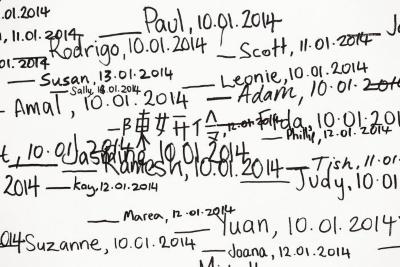 .01.2014
Paul, 10.01.2014
, 11.01.2014
Rodrigo, 10.01.2014
Scott, 11.01.2014
.01.2014
Susan, 13.01.2014
Leonie, 10.01.2014
Sally, 13.01.2014
Adam, 10.01.2014
Amal, 10.01.2014
12.01.2014
Phillip, 12.01.2014
t, 10.01.2014
Jasmine, 10.01.2014
Ramesh, 10.01.2014
Tish, 11.01
2014
Kay, 12.01.2014
Judy, 10.01
Marea, 12.01.2014
Yuan, 10.01.2014
014
Suzanne, 10.01.2014
Joana, 12.01.2014